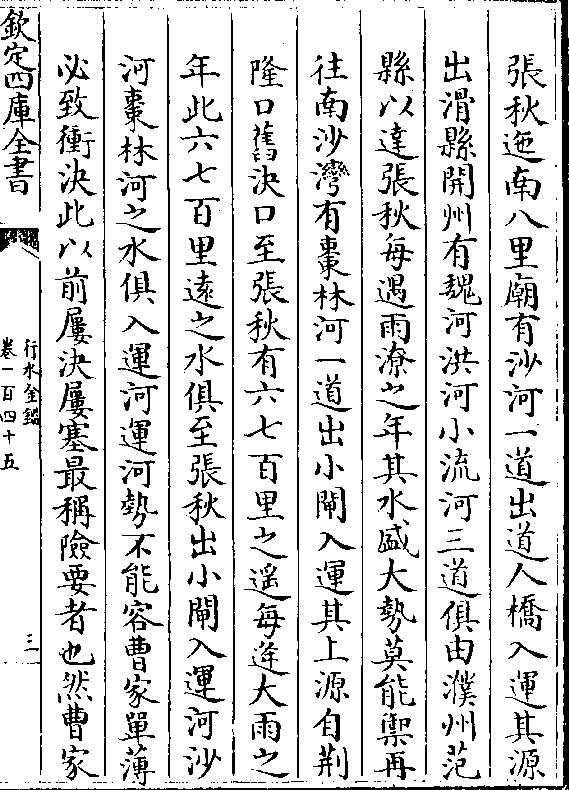 張秋迤南八里廟有沙河一道出道人橋入運其源
出滑縣開州有魏河洪河小流河三道俱由濮州范
縣以達張秋每遇雨潦之年其水盛大勢莫能禦再
往南沙灣有棗林河一道出小閘入運其上源自荆
隆口舊決口至張秋有六七百里之遥每逢大雨之
年此六七百里遠之水俱至張秋出小閘入運河沙
河棗林河之水俱入運河運河勢不能容曹家單薄
必致衝決此以前屢決屢塞最稱險要者也然曹家
欽定四庫全書
行水金鑑
卷一百四十五
三